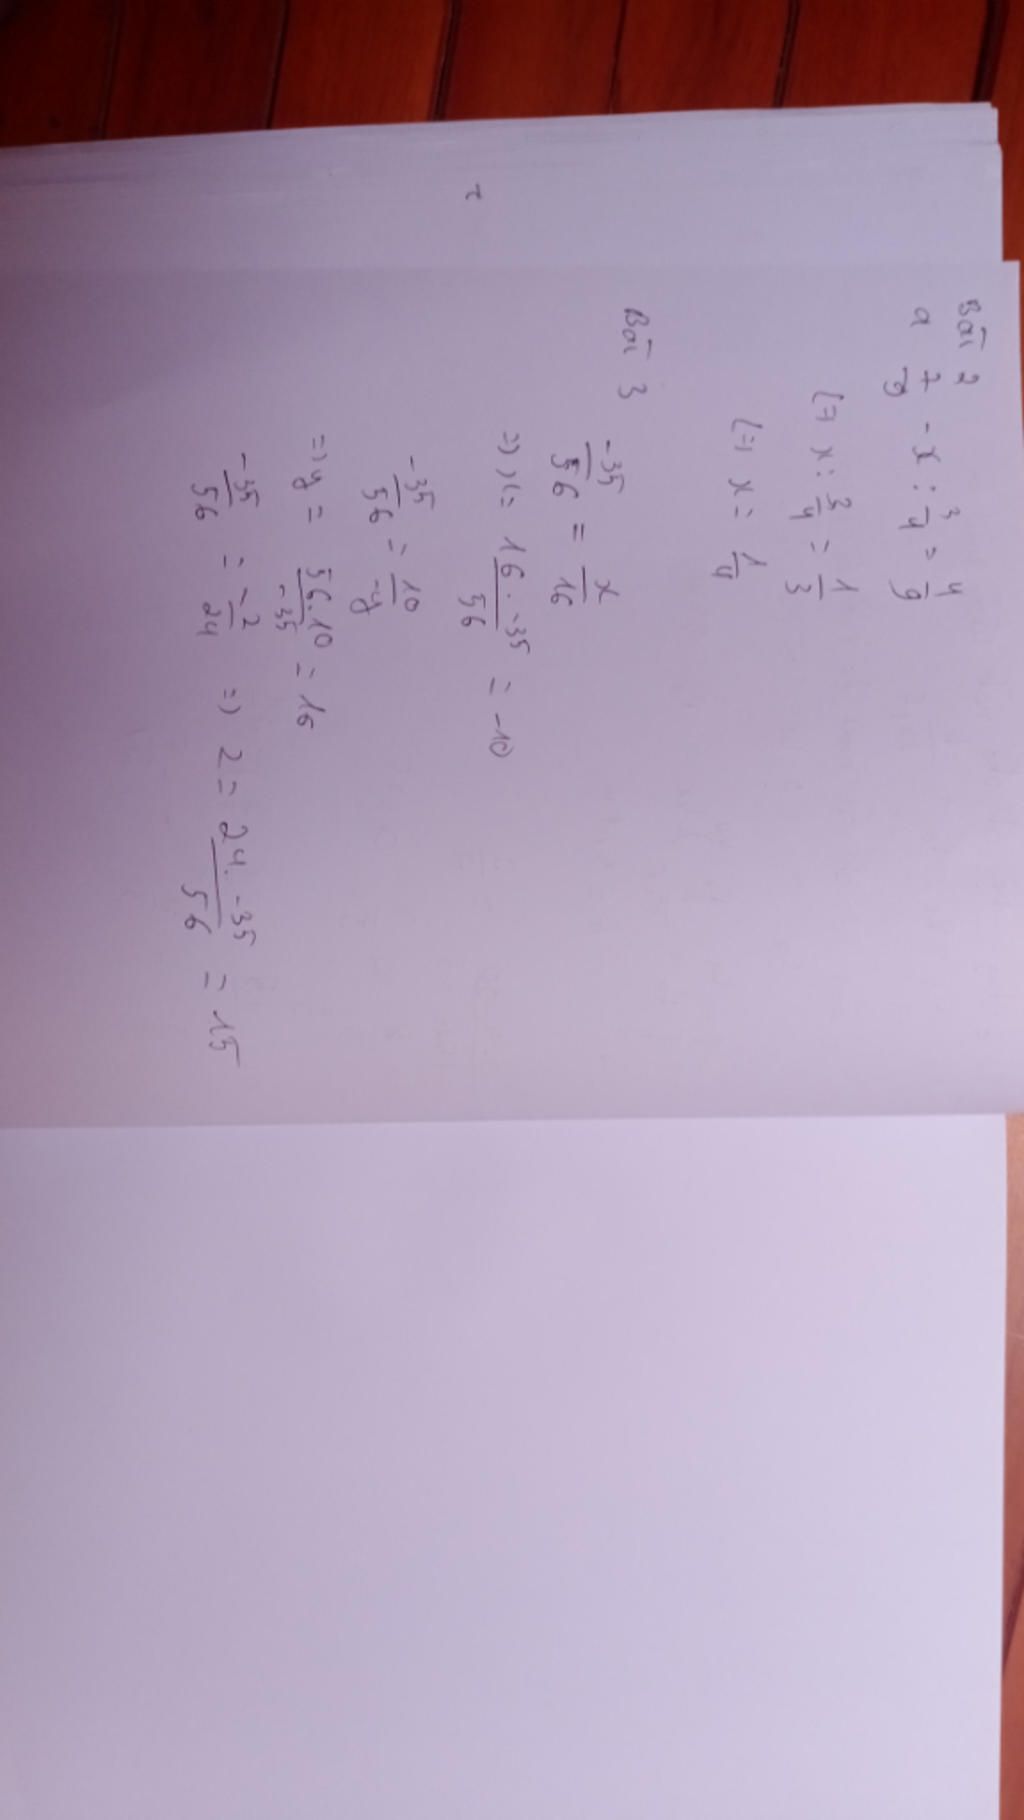 Bài 2
a 7/9 - x : 3/4 = 4/9
(=) x : 3/4 = 1/3
(=) x = 1/4
Bài 3
-35/56 = x/16
=) x = 16 . -35/56 = -10
-35/56 = 10/-y
=) y = 56.10/-35 = 16
-35/56 = -2/24 =) 2 = 24. -35/56 = 15